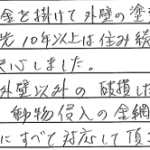 金を掛けて外壁の塗
先10年以上は住み続
心しました。
外壁以外の破損し
動物侵入の金網
にすべて対応して頂